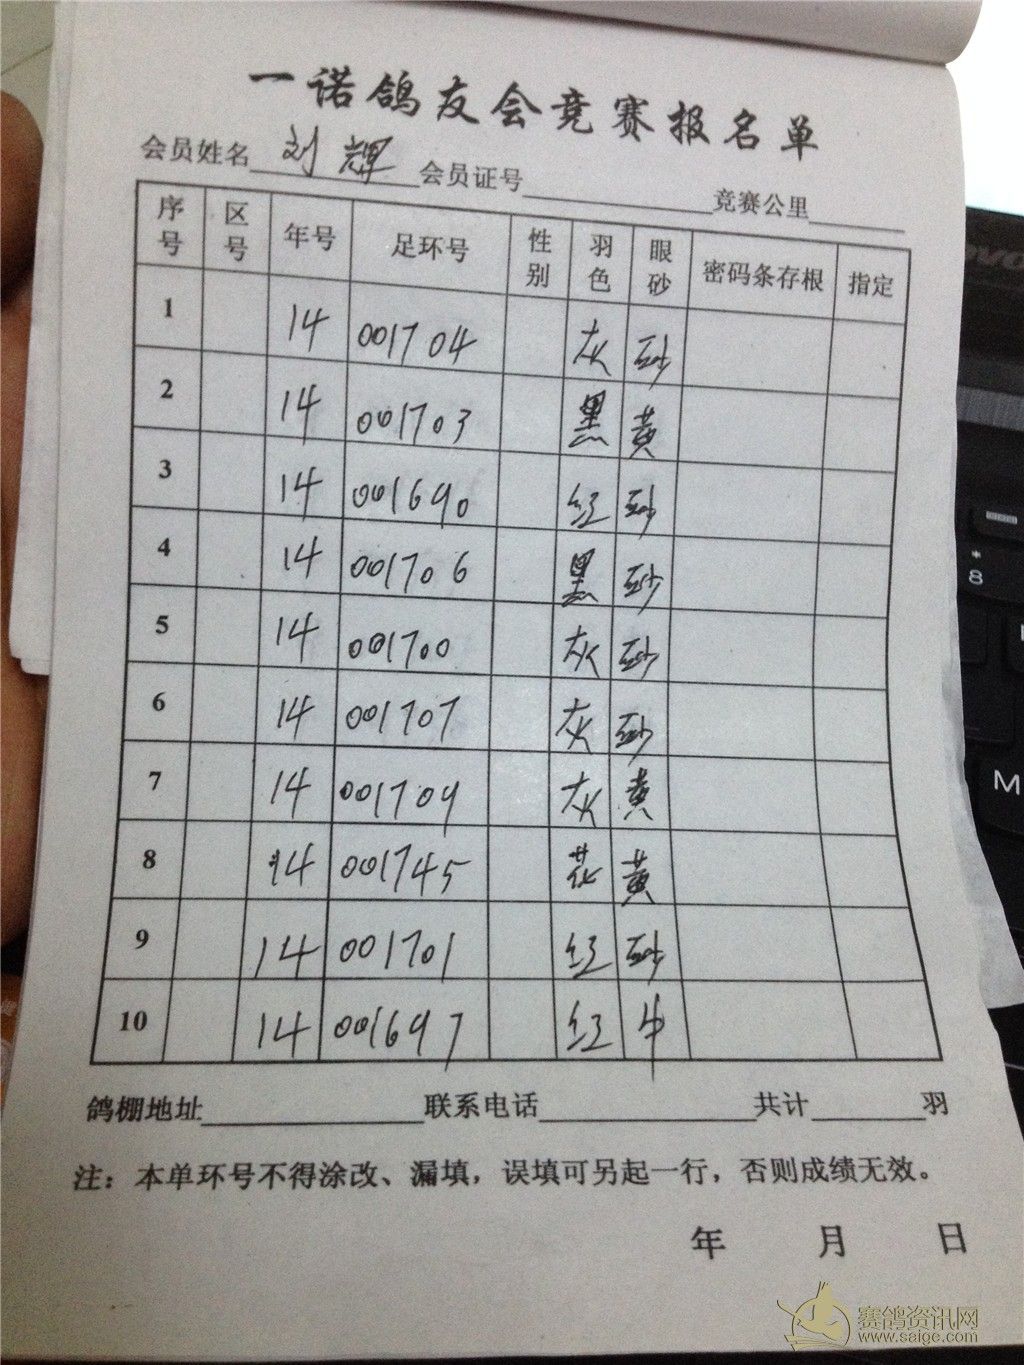 一诺鸽友会竞赛报名单
会员姓名 刘辉 会员证号 竞赛公里
序号 区号 年号 足环号 性别 羽色 眼砂 密码条存根 指定
1 14 001704 灰 砂
2 14 001703 黑 黄
3 14 001690 红 砂
4 14 001706 黑 砂
5 14 001700 灰 砂
6 14 001707 灰 砂
7 14 001709 灰 黄
8 14 001745 花 黄
9 14 001701 红 砂
10 14 001697 红 牛
鸽棚地址 联系电话 共计 羽
注：本单环号不得涂改、漏填，误填可另起一行，否则成绩无效。
年 月 日
赛鸽资讯网
www.saige.com
* 8
M